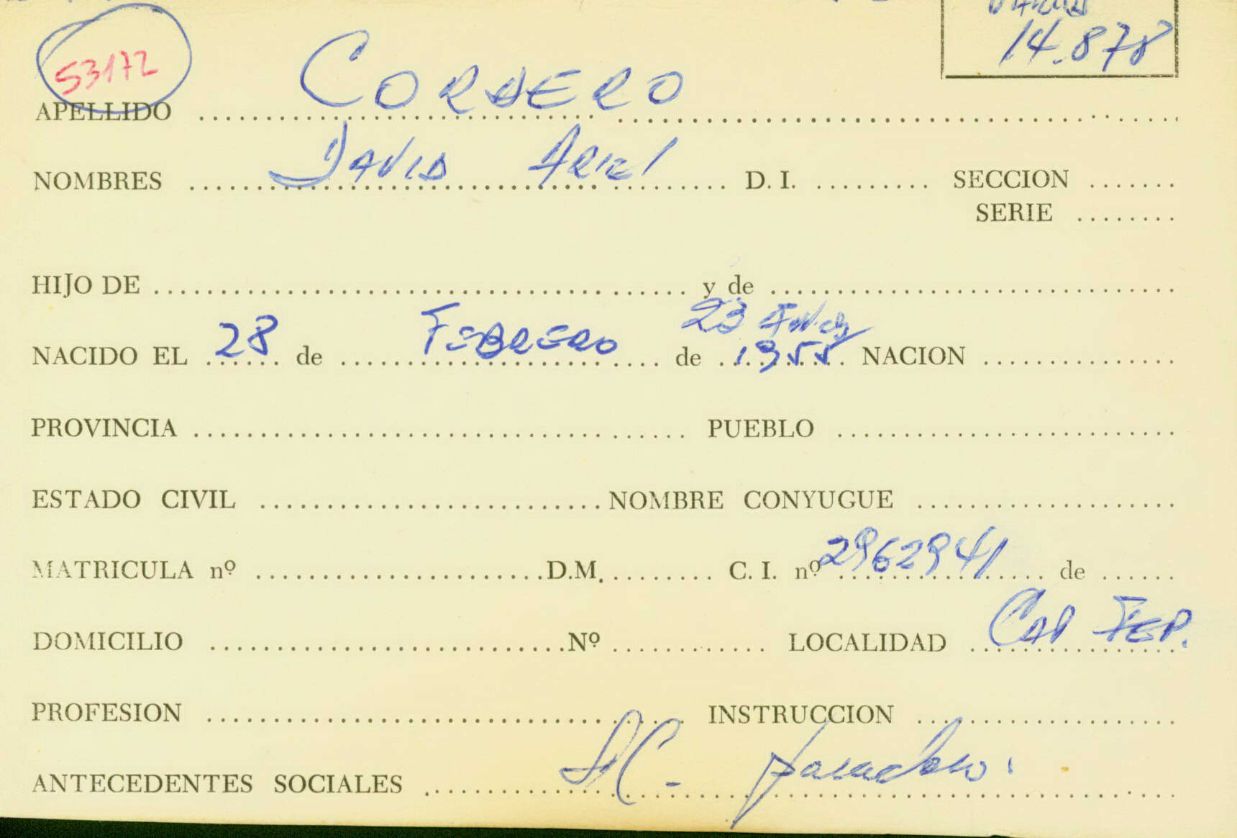 VARIOS
14.878
53172
APELLIDO CORDERO
NOMBRES DAVID ARIEL D. I. SECCION
SERIE
HIJO DE y de
23 Años
NACIDO EL 28 de FEBRERO de 1955 NACION
PROVINCIA PUEBLO
ESTADO CIVIL NOMBRE CONYUGUE
MATRICULA nº D.M. C. I. nº 2962941 de
DOMICILIO Nº LOCALIDAD CAP FED.
PROFESION INSTRUCCION
ANTECEDENTES SOCIALES paradero.